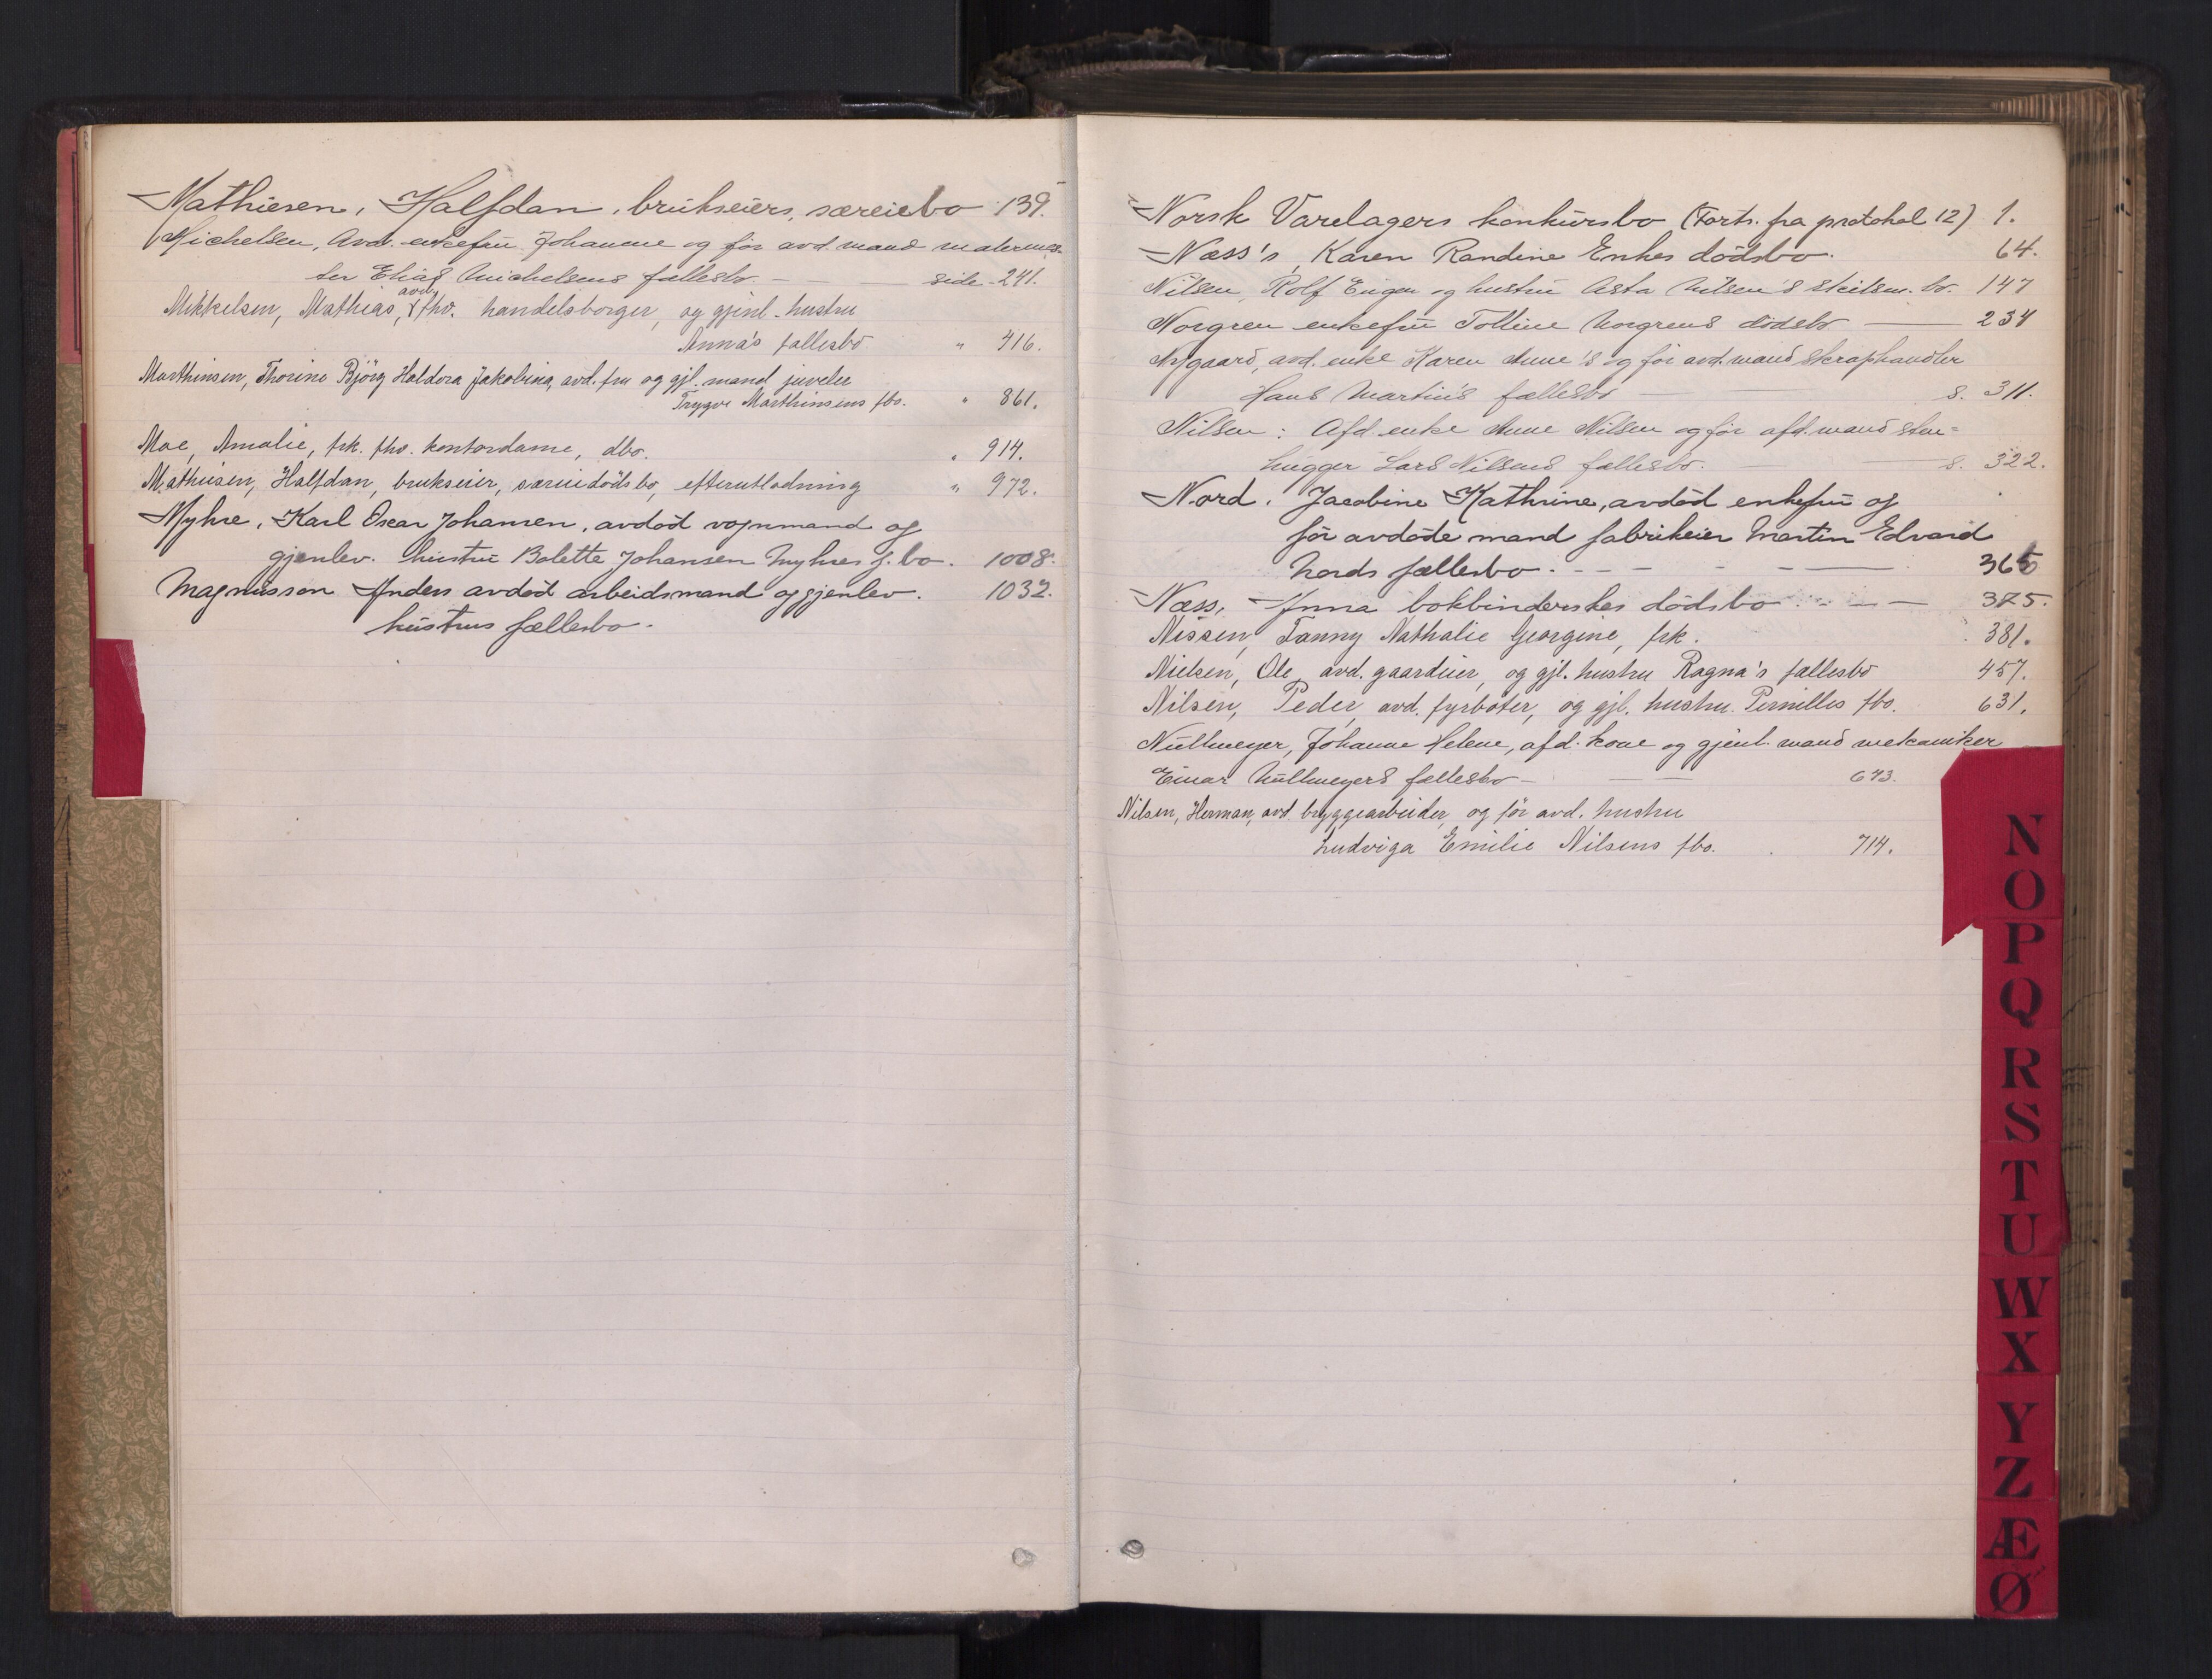 Mathiesen, Halfdan, brukseiers, særeiebo 139.
Michelsen, Avd. enkefru Johanne og før avd. mand malermes-
ter Elias Michelsens fællesbo. — side 241.
avd.
Mikkelsen, Mathias, fhv. handelsborger, og gjenl. hustru
Anna's fællesbo " 416.
Marthinsen, Thorine Bjørg Haldora Jakobina, avd. fru og gjl. mand juveler
Trygve Marthinsens fbo. " 861.
Moe, Amalie, frk. fhv. kontordame, dbo. " 914.
Mathiesen, Halfdan, brukseier, særeiedødsbo, efterutlodning " 972.
Myhre, Karl Oscar Johansen, avdød vognmand og
gjenlev. hustru Bolette Johansen Myhres f. bo. 1008.
Magnusson Anders avdød arbeidsmand og gjenlev. 1032.
hustrus fællesbo.
Norsk Varelagers konkursbo (Forts. fra protokol 12) 1.
Næss's, Karen Randine Enkes dödsbo. 64.
Nilsen, Rolf Eugen og hustru Asta Nilsen's skilsm. bo. 147
Norgren enkefru Tolline Norgrens dödsbo — 234
Nygaard, avd. enke Karen Anne's og før avd. mand skraphandler
Hans Martin's fællesbo — s. 311.
Nilsen: Afd. enke Anne Nilsen og før afd. mand sten=
hugger Lars Nilsens fællesbo. s. 322.
Nord. Jacobine Kathrine, avdød enkefru og
før avdøde mand fabrikeier Martin Edvard
Nords fællesbo. — 365
Næss, Anna bokbinderskes dödsbo. — 375.
Nissen, Fanny Nathalie Georgine, frk. 381.
Nielsen, Ole, avd. gaardeier, og gjl. hustru Ragna's fællesbo 457.
Nilsen, Peder, avd. fyrbøter, og gjl. hustru Pernilles fbo. 631.
Nullmeyer, Johanne Helene, afd. kone og gjenl. mand mekaniker
Einar Nullmeyers fællesbo — 673.
Nilsen, Herman, avd. bryggearbeider, og før avd. hustru
Ludviga Emilie Nilsens fbo. 714.
N
O
P
Q
R
S
T
U
W
X
Y
Z
Æ
Ø